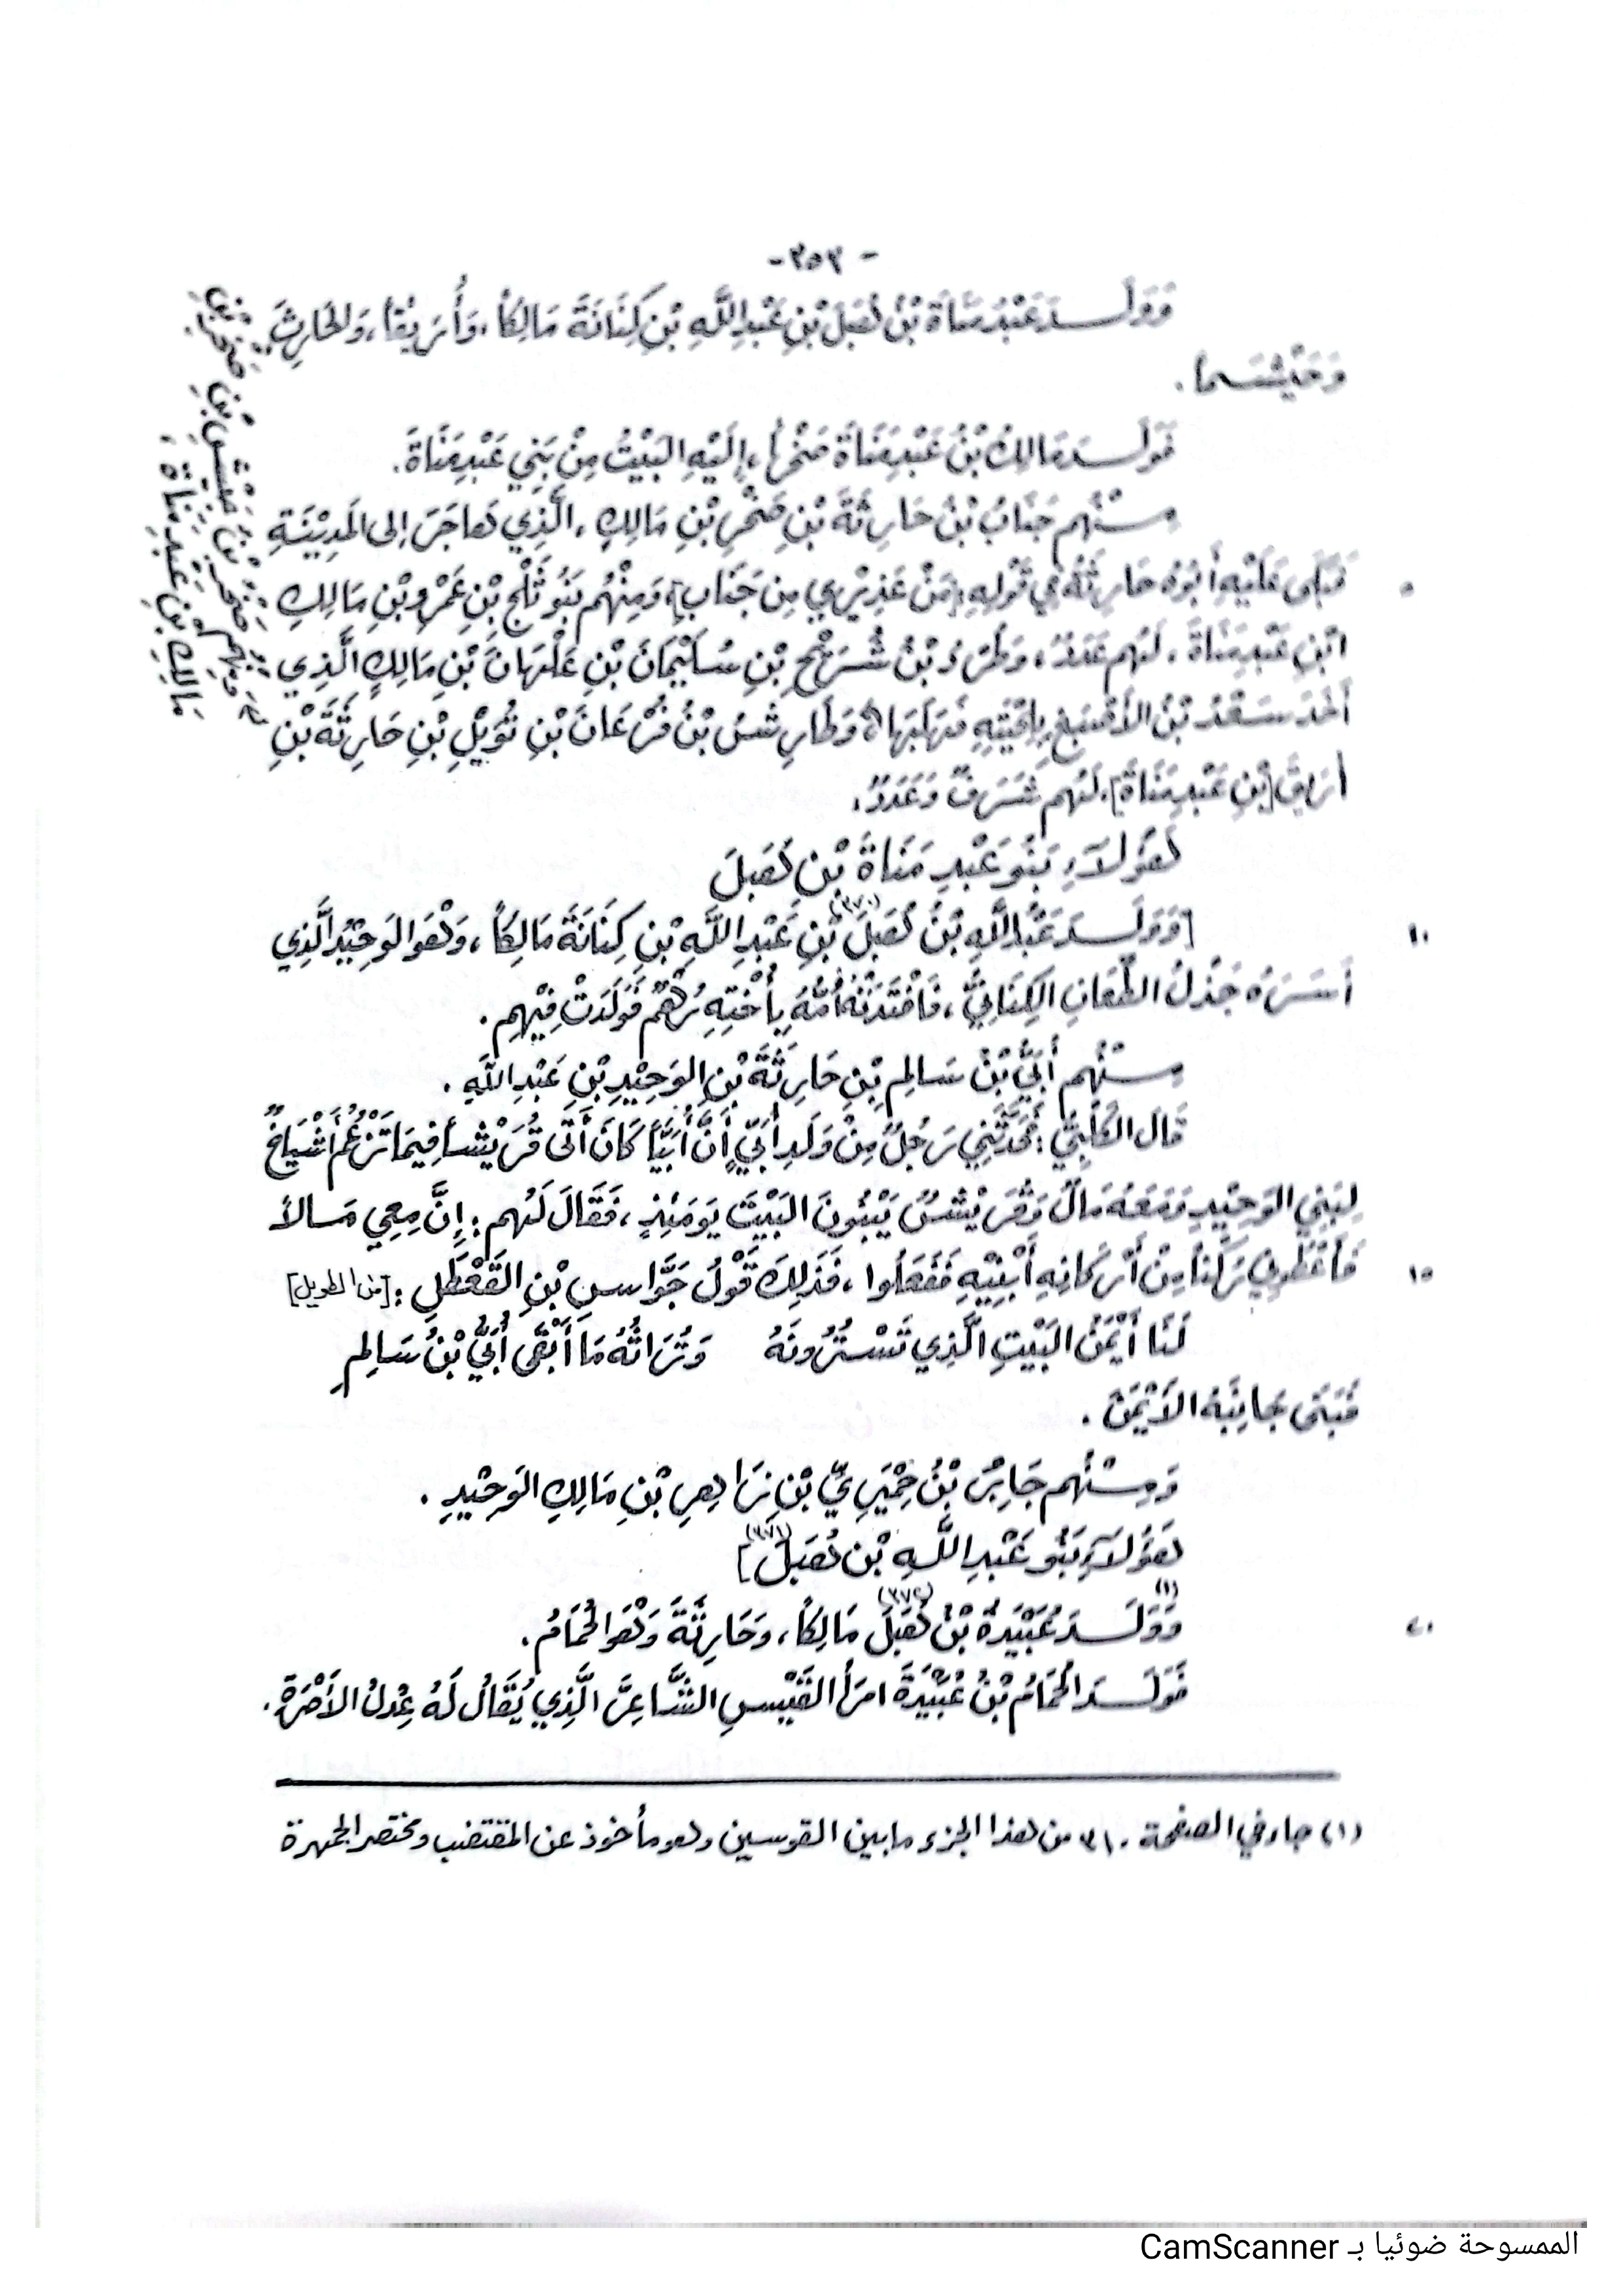 - ٣٥٣ -
وَوَلَـدَ عَبْدُ مَنَاةَ بْنُ هُبَلَ بْنِ عَبْدِ اللَّهِ بْنِ كِنَانَةَ مَالِكاً، وَأُرَيْقاً، وَالحَارِثَ،
وَخَيْشَماً.
فَوَلَـدَ مَالِكُ بْنُ عَبْدِ مَنَاةَ صَخْراً، إِلَيْهِ البَيْتُ مِنْ بَنِي عَبْدِ مَنَاةَ.
مِـنْهُم جَنَابُ بْنُ حَارِثَةَ بْنِ صَخْرِ بْنِ مَالِكٍ، الَّذِي هَاجَرَ إِلى المَدِيْنَةِ
فَبَكَى عَلَيْهِ أَبُوهُ حَارِثَةُ فِي قَوْلِهِ: [مَنْ عَذِيْرِي مِن جَنَابٍ]، وَمِنْهُم بَنُو ثَلْجِ بْنِ عَمْرِو بْنِ مَالِكِ
٥
ابْنِ عَبْدِ مَنَاةَ، لَهُم عَدَدٌ، بْنُ شُـرَيْحِ بْنِ سُلَيْمَانَ بْنِ عَلْهَانَ بْنِ مَالِكٍ الَّذِي
أَخَذَ سَعْدُ بْنُ الأَصْبَغِ بِلِحْيَتِهِ فَهَلَبَهَا، بْنُ فُرْعَانَ بْنِ ثُوَيْلِ بْنِ حَارِثَةَ بْنِ
أُرَيْقَ [بْنِ عَبْدِ مَنَاةَ]، لَهُم شَرَفٌ وَعَدَدٌ.
وَمِنْهُم صَخْرُ بْنُ بْنِ صَخْرِ بْنِ
مَالِكِ بْنِ عَبْدِ مَنَاةَ،
هَؤُلَاءِ بَنُو عَبْدِ مَنَاةَ بْنِ هُبَلَ
[وَوَلَـدَ عَبْدُ اللَّهِ بْنُ هُبَلَ (٣٧٠) بْنِ عَبْدِ اللَّهِ بْنِ كِنَانَةَ مَالِكاً، وَهْوَ الوَحِيْدُ الَّذِي
١٠
أَسَـرَهُ جَذْلُ الطِّعَانِ الكِنَانِيُّ، فَافْتَدَتْهُ أُمُّهُ بِأُخْتِهِ رُهْمٌ فَوَلَدَتْ فِيْهِم.
مِـنْهُم أُبَيُّ بْنُ سَالِمِ بْنِ حَارِثَةَ بْنِ الوَحِيْدِ بْنِ عَبْدِ اللَّهِ.
قَالَ الكَلْبِيُّ: حَدَّثَنِي رَجُلٌ مِنْ وَلَدِ أُبَيٍّ أَنَّ أُبَيَّاً كَانَ أَتَى قُرَيْشاً فِيمَا تَزْعُمُ أَشْيَاخٌ
لِبَنِي الوَحِيْدِ وَمَعَهُ مَالٌ وَقُرَيْشٌ يَبْنُونَ البَيْتَ يَوْمَئِذٍ، فَقَالَ لَهُم: إِنَّ مَعِي مَـالاً
فَأَعْطُونِي رُكْناً مِنْ أَرْكَانِهِ أَبْنِيْهِ فَفَعَلُوا، فَذَلِكَ قَوْلُ جَوَّاسِ بْنِ القَعْطَلِ: [من الطويل]
١٥
لَنَا أَيْمَنُ البَيْتِ الَّذِي تَسْتُرُونَهُ وَتُرَاثُهُ مَا أَبْقَى أُبَيُّ بْنُ سَالِمِ
فَبَنَى جَانِبَهُ الأَيْمَنَ.
وَمِـنْهُم جَابِرُ بْنُ حِمْيَرِيِّ بْنِ بْنِ مَالِكِ الوَحِيْدِ.
هَؤُلَاءِ بَنُو عَبْدِ اللَّهِ بْن هُبَلَ (٣٧١)]
(١) وَوَلَـدَ عُبَيْدَةُ بْنُ هُبَلَ (٣٧٢) مَالِكاً، وَحَارِثَةَ وَهْوَ الحُمَامُ.
٢٠
فَوَلَـدَ الحُمَامُ بْنُ عُبَيْدَةَ امرَأَ القَيْسِ الشَّاعِرَ الَّذِي يُقَالُ لَهُ عِدْلُ الأَصْرَةِ.
(١) جاء في الصفحة ٣١٠ من هذا الجزء مابين القوسين وهو مأخوذ عن المقتضب ومختصر الجمهرة
الممسوحة ضوئيا بـ CamScanner